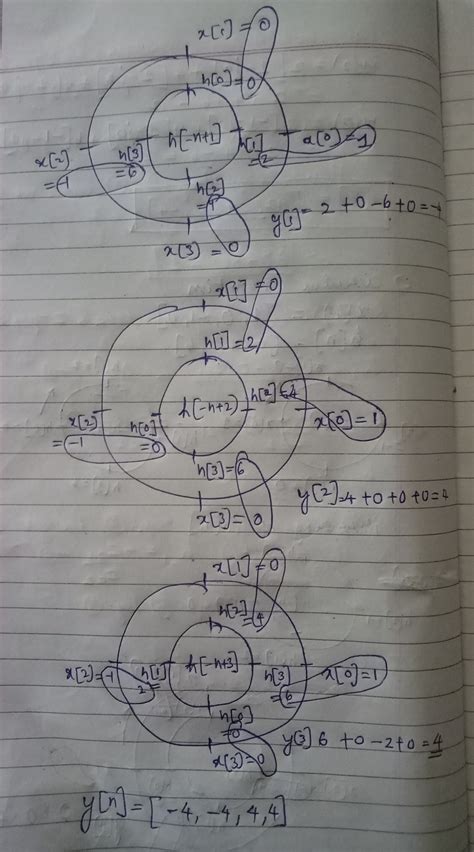 x[1] = 0
h[0] = 0
h[-n+1]
x[2] = -1
h[3] = 6
h[1] = 2
x(0) = 1
h[2] = 4
x(3) = 0
y[1] = 2 + 0 - 6 + 0 = -4
x[1] = 0
h[1] = 2
h[2] = 4
h(-n+2)
x[2] = -1
h[0] = 0
x[0] = 1
h[3] = 6
x[3] = 0
y[2] = 4 + 0 + 0 + 0 = 4
x[1] = 0
h[2] = 4
x[2] = -1
h[1] = 2
h[-n+3]
h[3] = 6
x[0] = 1
h[0] = 0
x[3] = 0
y[3] 6 + 0 - 2 + 0 = 4
y[n] = [-4, -4, 4, 4]